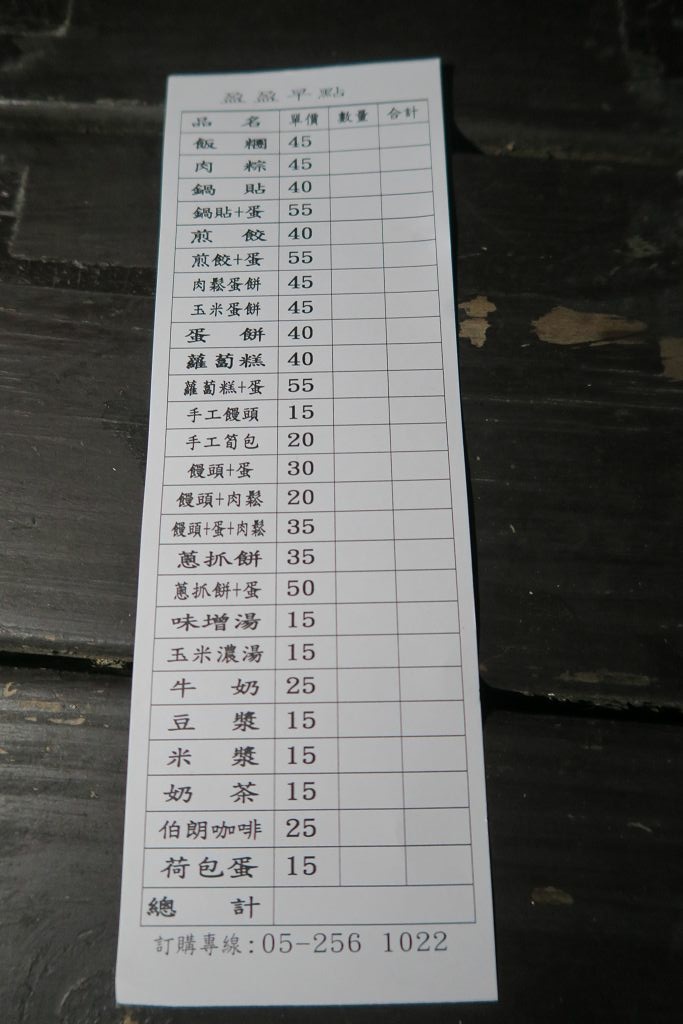 盈盈早點
品名 單價 數量 合計
飯糰 45
肉粽 45
鍋貼 40
鍋貼+蛋 55
煎餃 40
煎餃+蛋 55
肉鬆蛋餅 45
玉米蛋餅 45
蛋餅 40
蘿蔔糕 40
蘿蔔糕+蛋 55
手工饅頭 15
手工筍包 20
饅頭+蛋 30
饅頭+肉鬆 20
饅頭+蛋+肉鬆 35
蔥抓餅 35
蔥抓餅+蛋 50
味增湯 15
玉米濃湯 15
牛奶 25
豆漿 15
米漿 15
奶茶 15
伯朗咖啡 25
荷包蛋 15
總計
訂購專線:05-256 1022